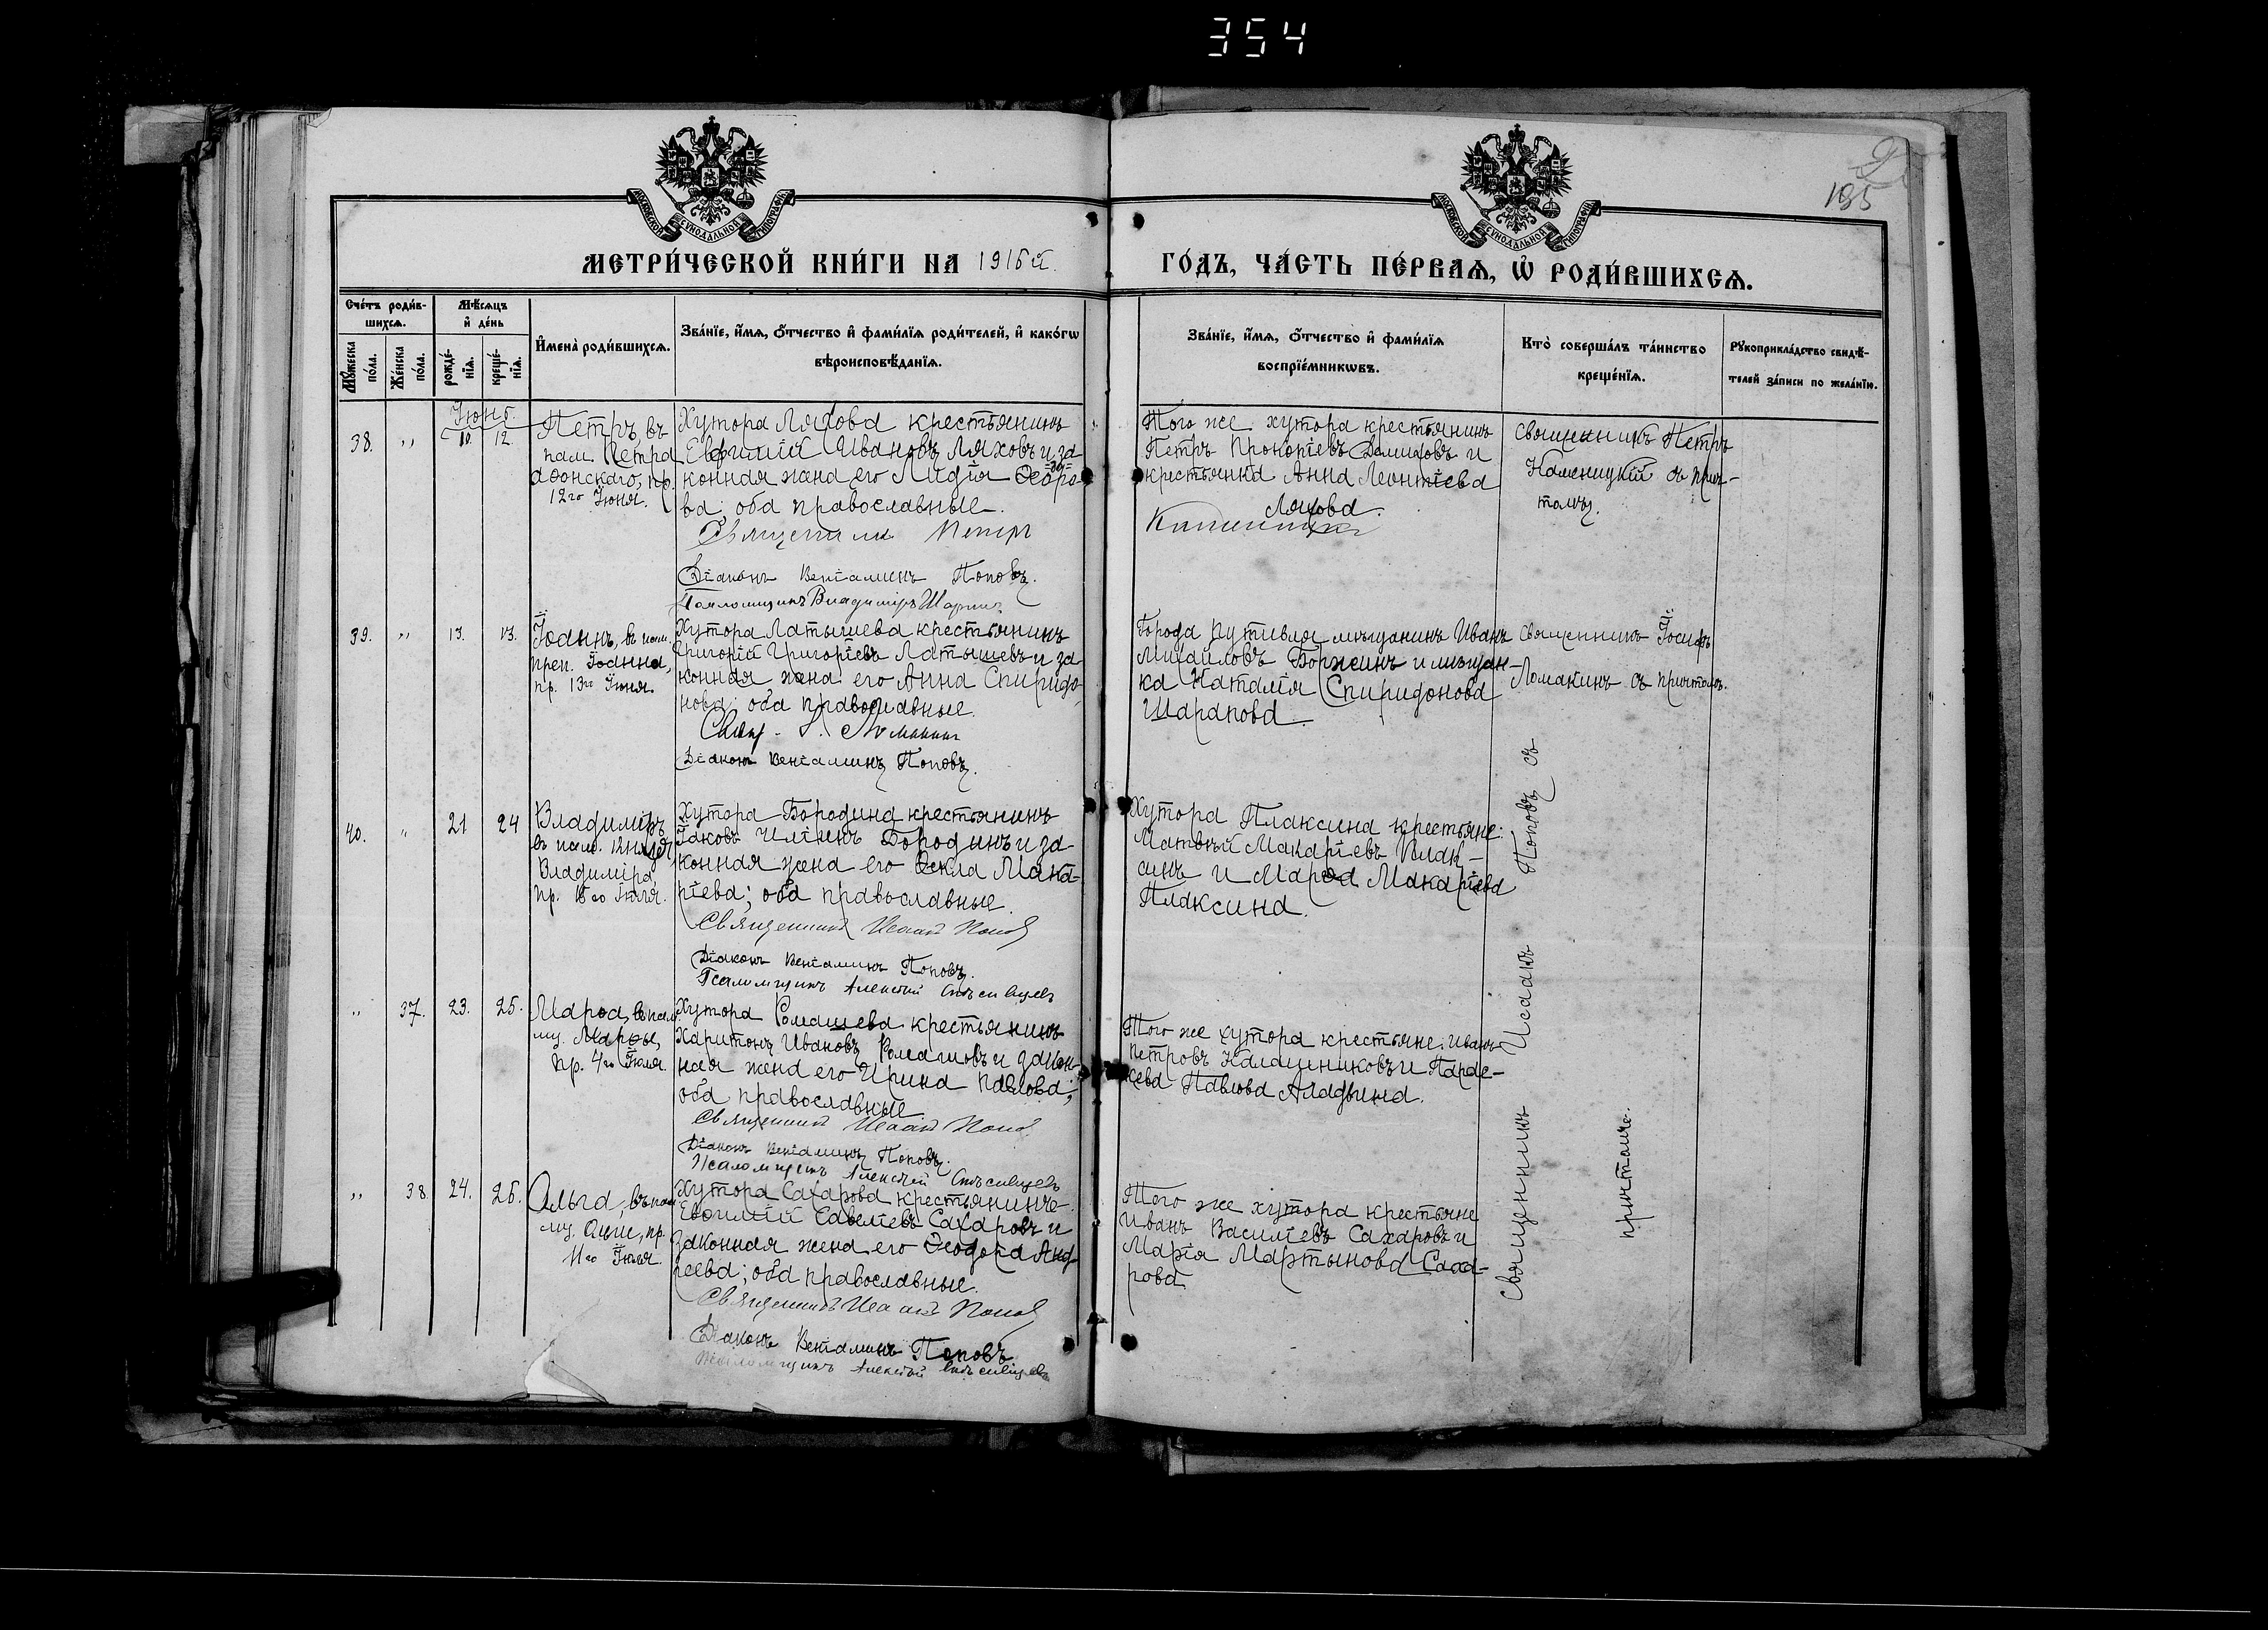 354
МОСКОВСКОЙ СѴНОДАЛЬНОЙ ТИПОГРАФІИ
МОСКОВСКОЙ СѴНОДАЛЬНОЙ ТИПОГРАФІИ
195
МЕТРИ́ЧЕСКОЙ КНИ́ГИ НА 1916й.
ГО́ДЪ, ЧА́СТЬ ПЕ́РВАѦ, Ѡ҆ РОДИ́ВШИХСѦ.
Сче́тъ роди́в-
шихсѧ.
Мѣ́сѧцъ
и҆ де́нь
Мꙋ́жеска
по́ла.
Же́нска
по́ла.
рожде́-
нїѧ.
креще́-
нїѧ.
И҆мена̀ роди́вшихсѧ.
Зва́нїе, и҆́мѧ, ѻ҆́тчество и҆ фами́лїѧ роди́телей, и҆ како́гѡ
вѣроисповѣ́данїѧ.
Зва́нїе, и҆́мѧ, ѻ҆́тчество и҆ фами́лїѧ
воспрїе́мникѡвъ.
Кто̀ соверша́лъ та́инство
креще́нїѧ.
Рꙋкоприкла́дство свидѣ́-
телей за́писи по жела́нїю.
Іюнь.
38. " 10. 12.
Петръ, въ
пам. Петра
Аѳонскаго, пр.
12го Іюня.
Хутора Ляхова крестьянинъ
Евфимій Ивановъ Ляховъ и за
конная жена его Лидія Ѳеодоро
ва; оба православные.
Священникъ Петръ
Діаконъ Веніаминъ Поповъ.
Псаломщикъ Владиміръ
Того же хутора крестьянинъ
Петръ Прокопіевъ и
крестьянка Анна Леонтіева
Ляхова.
Каменицкій
Священникъ Петръ
Каменицкій съ прич-
томъ.
39. " 13. 13.
Іоаннъ, въ пам.
преп. Іоанна,
пр. 13го Іюня.
Хутора Латышева крестьянинъ
Григорій Григоріевъ Латышевъ и за
конная жена его Анна Спиридо
нова; оба православные.
Свящ. І. Ломакинъ
Діаконъ Веніаминъ Поповъ.
Города Путивля мѣщанинъ Иванъ
Михаиловъ Боржинъ и мѣщан-
ка Наталія Спиридонова
Шарапова.
Священникъ Іосифъ
Ломакинъ съ причтомъ.
40. " 21 24
Владиміръ
въ пам. князя
Владиміра,
пр. 15го Іюля.
Хутора Бородина крестьянинъ
Іаковъ Иліинъ Бородинъ и за
конная жена его Ѳекла Мака-
ріева; оба православные.
Священникъ Исаакъ Поповъ
Діаконъ Веніаминъ Поповъ.
Псаломщикъ Алексѣй
Хутора Плаксина крестьяне:
Матвѣй Макаріевъ Плак-
синъ и Марѳа Макаріева
Плаксина.
" 37. 23. 25.
Марѳа, въ пам.
му. Марѳы,
пр. 4го Іюля.
Хутора Ромашева крестьянинъ
Харитонъ Ивановъ Ромашовъ и закон-
ная жена его Ирина Павлова;
оба православные
Священникъ Исаакъ Поповъ
Діаконъ Веніаминъ Поповъ.
Псаломщикъ Алексѣй
Того же хутора крестьяне: Иванъ
Петровъ Калашниковъ и Парас-
кева Павлова Аладьина.
" 38 24. 26.
Ольга, въ пам
пр.
11го Іюля.
Хутора Сахарова крестьянинъ
Евѳимій Савеліевъ Сахаровъ и
законная жена его Ѳеодора Анд
реева; оба православные.
Священникъ Исаакъ Поповъ
Діаконъ Веніаминъ Поповъ.
Псаломщикъ Алексѣй
Того же хутора крестьяне
Иванъ Василіевъ Сахаровъ и
Марія Мартынова Саха-
рова
Священникъ Исаакъ Поповъ съ
причтомъ.